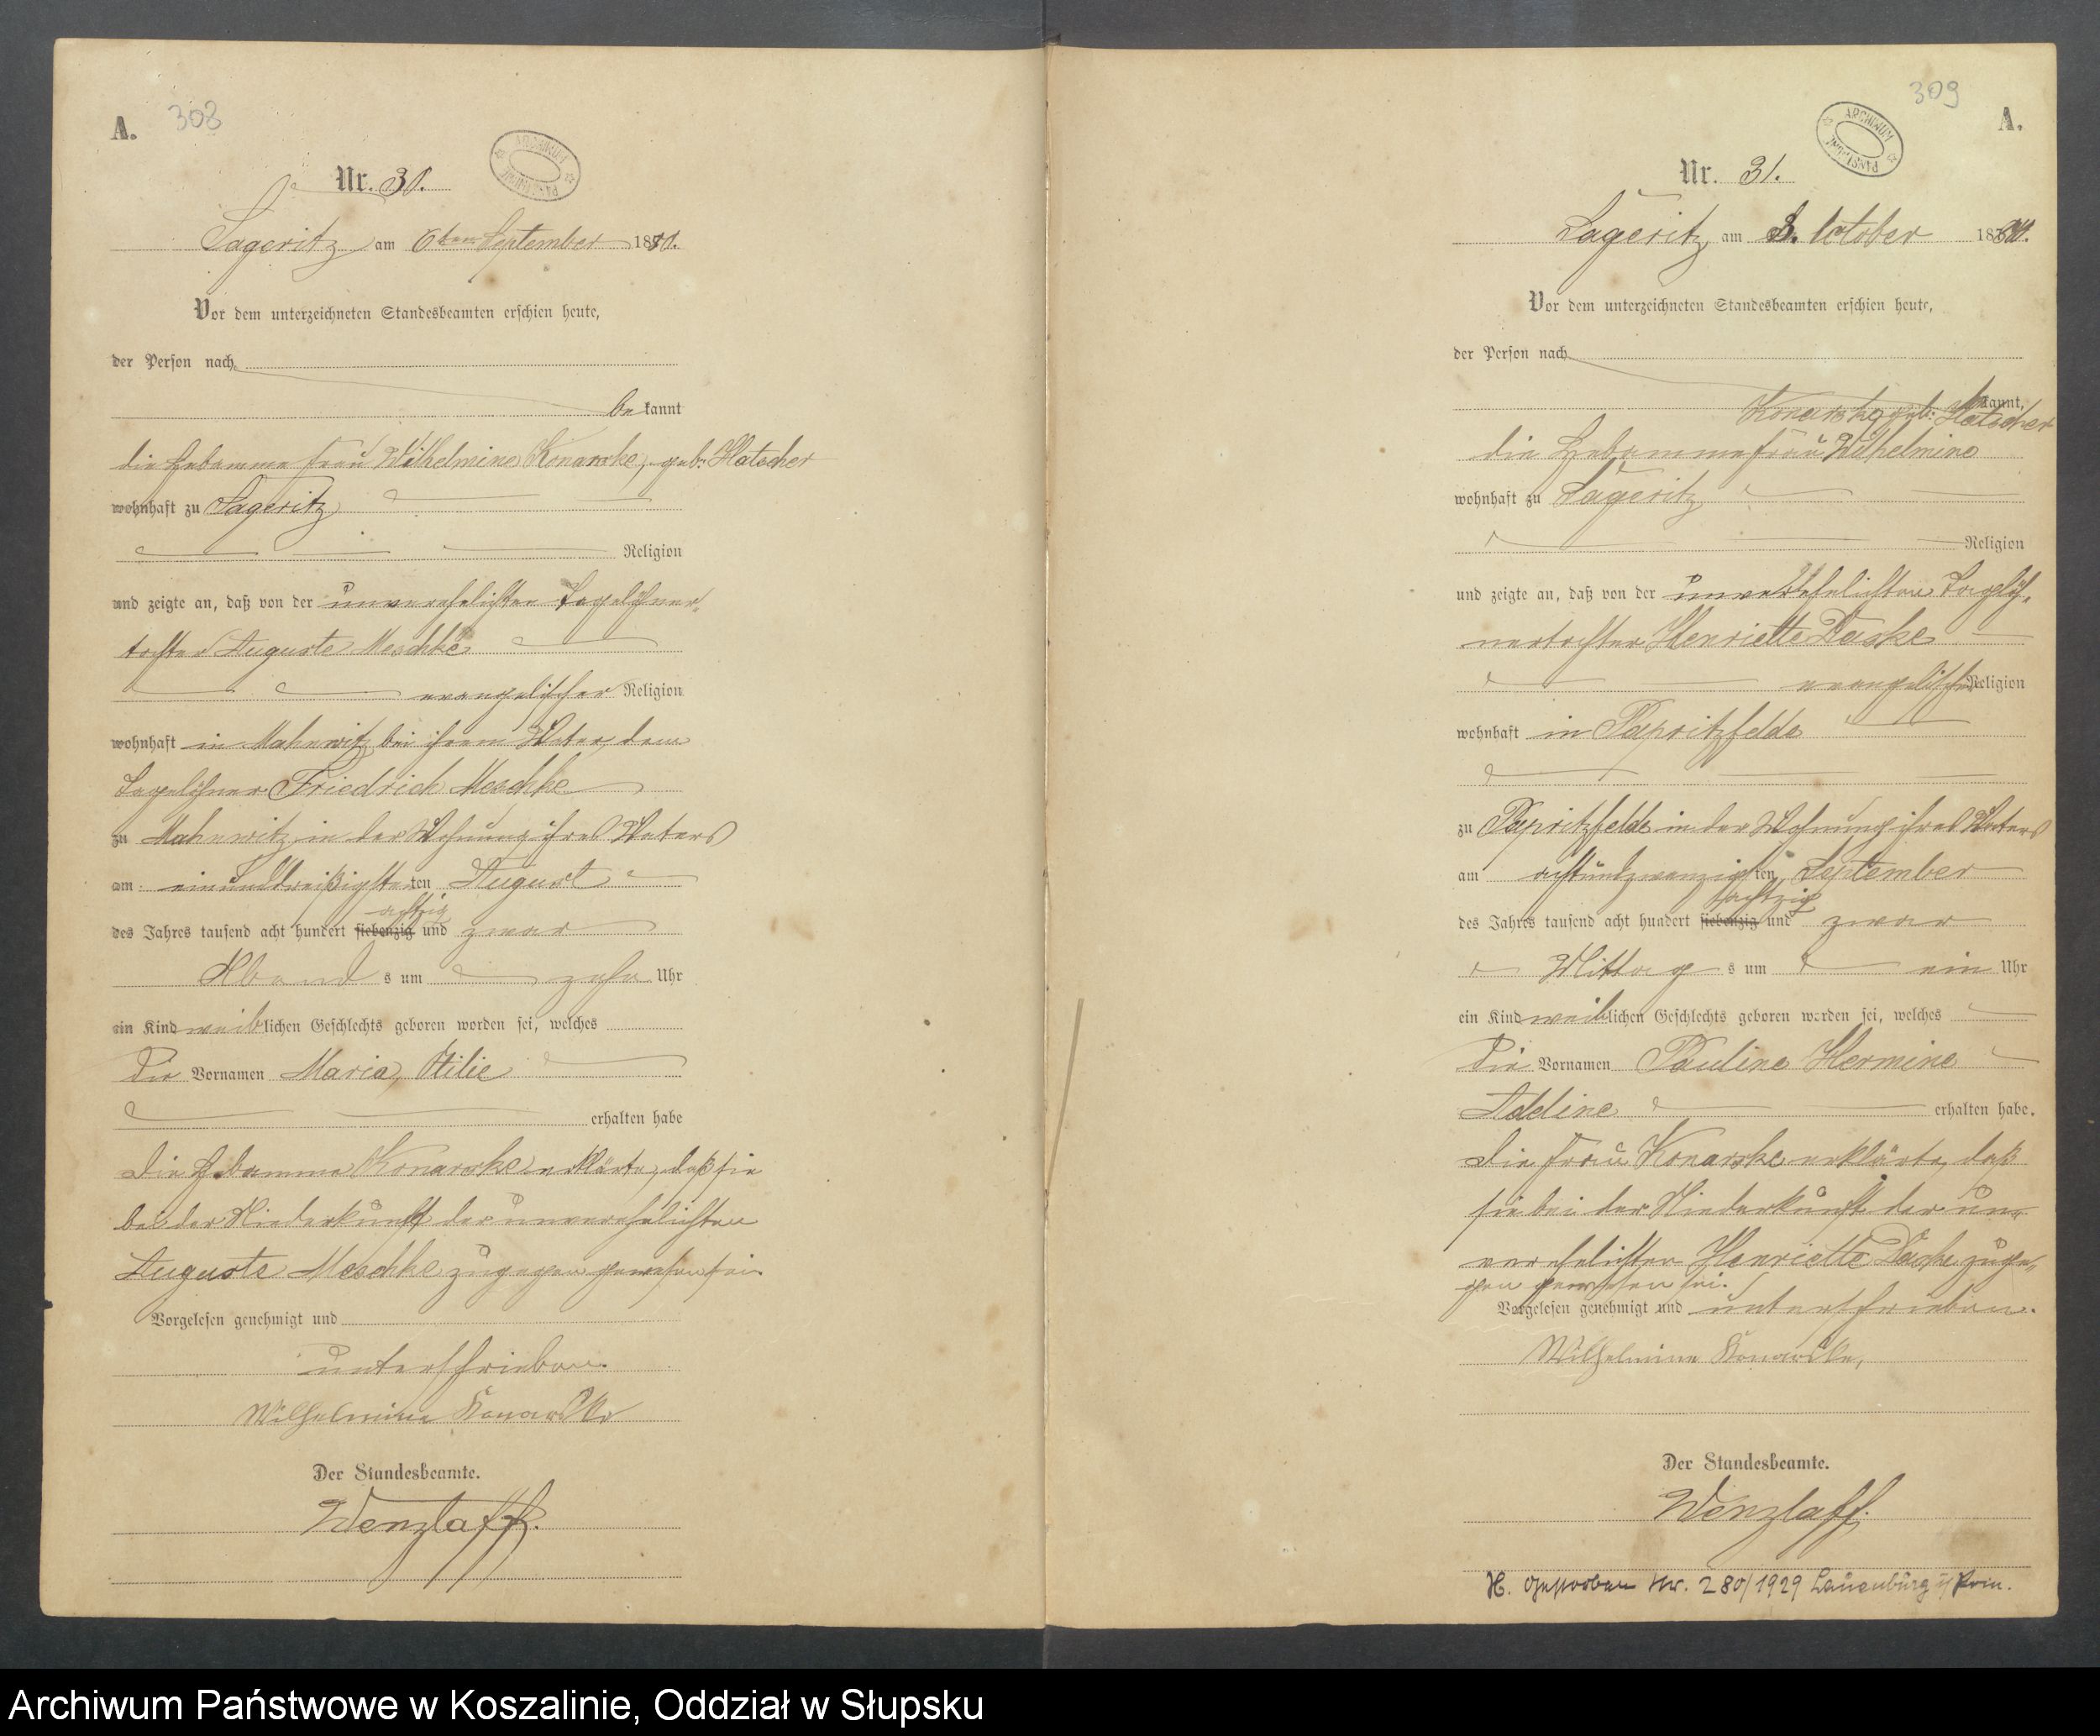 A.
308
ARCHIWUM PAŃSTWOWE
Nr. 30.
Lageritz am 6ten September 1880.
Vor dem unterzeichneten Standesbeamten erschien heute,
der Person nach
bekannt
die Hebamme Frau Wilhelmine Konarske, geb: Hatscher
wohnhaft zu Lageritz
Religion
und zeigte an, daß von der unverehelichten Tagelöhner-
tochter Auguste Meschke
evangelischer Religion
wohnhaft in Mahnwitz bei ihrem Vater, dem
Tagelöhner Friedrich Meschke
zu Mahnwitz in der Wohnung ihres Vaters
am einunddreißigsten ten August
achtzig
des Jahres tausend acht hundert siebenzig und zwar
Abend s um zehn Uhr
ein Kind weiblichen Geschlechts geboren worden sei, welches
die Vornamen Maria, Otilie
erhalten habe
Die Hebamme Konarske erklärte, daß sie
bei der Niederkunft der unverehelichten
Auguste Meschke zugegen gewesen sei
Vorgelesen genehmigt und
unterschrieben.
Wilhelmine Konarske
Der Standesbeamte.
Wenzlaff.
309
A.
ARCHIWUM PAŃSTWOWE
Nr. 31.
Lageritz, am 3. October 1880.
Vor dem unterzeichneten Standesbeamten erschien heute,
der Person nach
bekannt,
Konarske geb: Hatscher
die Hebamme Frau Wilhelmine
wohnhaft zu Lageritz
Religion
und zeigte an, daß von der unverehelichten Tagelöh-
nertochter Henriette Daske
evangelischer Religion
wohnhaft in Papritzfelde
zu Papritzfelde in der Wohnung ihres Vaters
am achtundzwanzigsten ten September
achtzig
des Jahres tausend acht hundert siebenzig und zwar
Mittag s um ein Uhr
ein Kind weiblichen Geschlechts geboren worden sei, welches
die Vornamen Pauline Hermine
Addine erhalten habe.
Die Frau Konarske erklärte, daß
sie bei der Niederkunft der un-
verehelichten Henriette Daske zuge-
gen gewesen sei.
Vorgelesen genehmigt und unterschrieben.
Wilhelmine Konarske,
Der Standesbeamte.
Wenzlaff.
H. Gestorben Nr. 280/1929 Lauenburg i/Pom.
Archiwum Państwowe w Koszalinie, Oddział w Słupsku